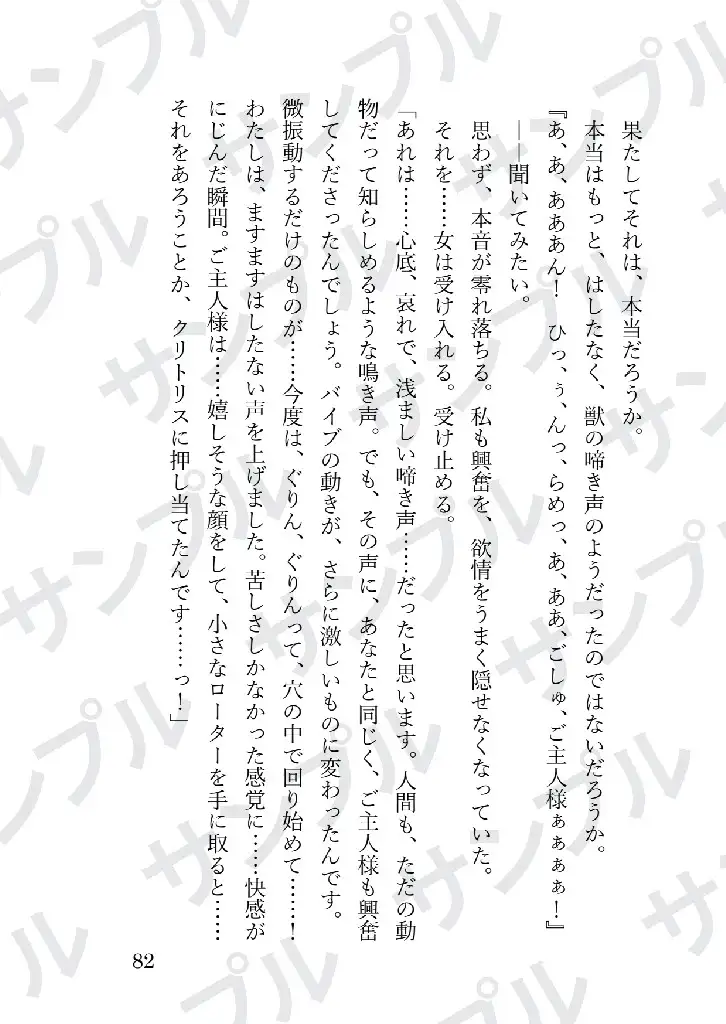 果たしてそれは、本当だろうか。
本当はもっと、はしたなく、獣の啼き声のようだったのではないだろうか。
『あ、あ、あああん！　ひっ、ぅ、んっ、らめっ、あ、ああ、ごしゅ、ご主人様ぁぁぁぁ！』
――聞いてみたい。
思わず、本音が零れ落ちる。私も興奮を、欲情をうまく隠せなくなっていた。
それを……女は受け入れる。受け止める。
「あれは……心底、哀れで、浅ましい啼き声……だったと思います。人間も、ただの動
物だって知らしめるような鳴き声。でも、その声に、あなたと同じく、ご主人様も興奮
してくださったんでしょう。バイブの動きが、さらに激しいものに変わったんです。
微振動するだけのものが……今度は、ぐりん、ぐりんって、穴の中で回り始めて……！
わたしは、ますますはしたない声を上げました。苦しさしかなかった感覚に……快感が
にじんだ瞬間。ご主人様は……嬉しそうな顔をして、小さなローターを手に取ると……
それをあろうことか、クリトリスに押し当てたんです……っ！」
82
サンプル
サンプル
サンプル
サンプル
サンプル
サンプル
サンプル
サンプル
サンプル
サンプル
サンプル
サンプル